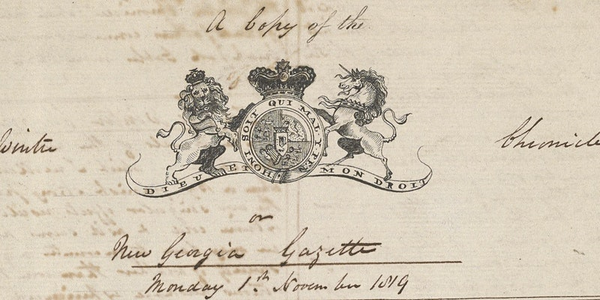 A Copy of the
HONI SOIT QUI MAL Y PEN
Winter Chronicle
DIEU ET MON DROIT
or
New Georgia Gazette
Monday 1st November 1819